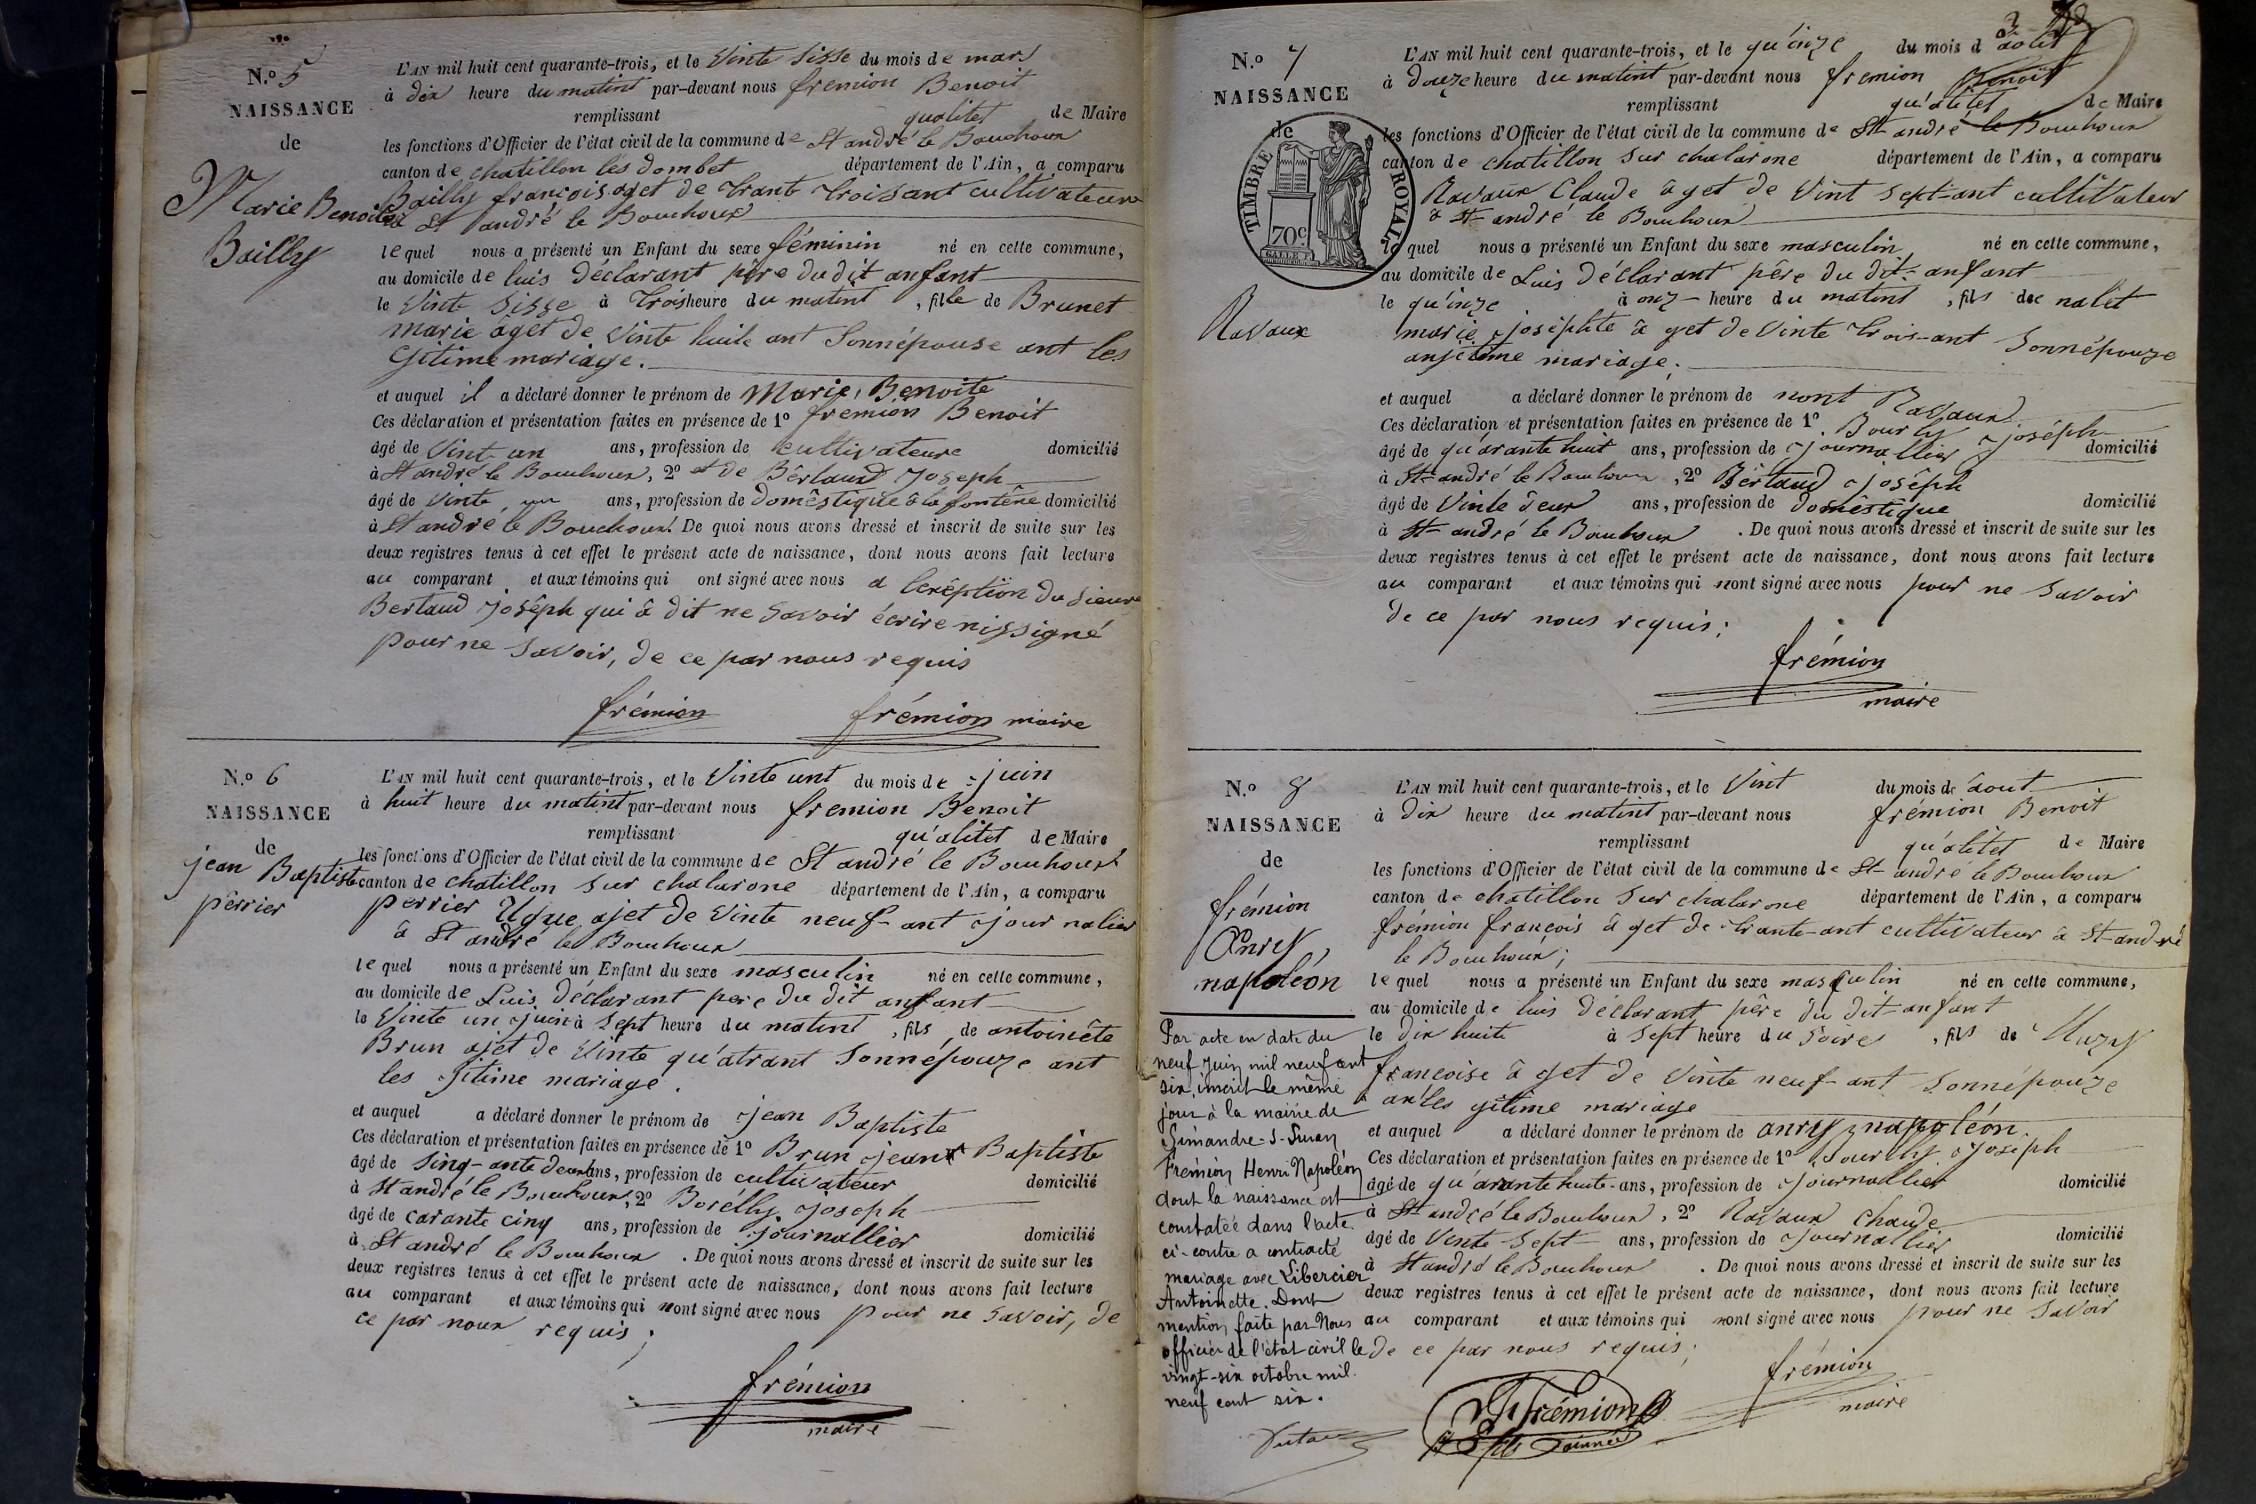 N.o 5
NAISSANCE
de
Marie Benoite
Bailly
L'AN mil huit cent quarante-trois, et le Vinte sisse du mois de mars
à dix heure du matint par-devant nous fremion Benoit
remplissant qualitet de Maire
les fonctions d'Officier de l'état civil de la commune de St andré le Bouchoux
canton de chatillon les dombet département de l'Ain, a comparu
Bailly françois aget de trante troisant cultivateure
à St andré le Bouchoux
lequel nous a présenté un Enfant du sexe féminin né en cette commune,
au domicile de luis déclarant père du dit anfant
le Vinte sisse à trois heure du matint, fille de Brunet
marie âget de Vinte huite ant sonnépouse ant les
gitime mariage.
et auquel il a déclaré donner le prénom de Marie, Benoite
Ces déclaration et présentation faites en présence de 1o fremion Benoit
âgé de Vint un ans, profession de cultivateure domicilié
à St andré le Bouchoux, 2o et de Bertaud Joseph
âgé de Vinte un ans, profession de domêstique à la fontêne domicilié
à St andré le Bouchoux. De quoi nous avons dressé et inscrit de suite sur les
deux registres tenus à cet effet le présent acte de naissance, dont nous avons fait lecture
au comparant et aux témoins qui ont signé avec nous a lexéption du sieure
Bertaud joséph qui à dit ne savoir écrire nissigné
pour ne savoir, de ce par nous requis
frémion frémion maire
N.o 6
NAISSANCE
de
jean Baptiste
pérrier
L'AN mil huit cent quarante-trois, et le Vinte unt du mois de juin
à huit heure du matint par-devant nous fremion Benoit
remplissant qu'alitet de Maire
les fonctions d'Officier de l'état civil de la commune de St andré le Bouchoux
canton de chatillon sur chalarone département de l'Ain, a comparu
perrier Ugue ajet de Vinte neuf-ant journalier
à St andré le Bouchoux
lequel nous a présenté un Enfant du sexe masculin né en cette commune,
au domicile de Luis déclarant pere du dit anfant
le Vinte un juin à sept heure du matint, fils de antoinête
Brun ajet de Vinte qu'atrant sonnépouze ant
les gitime mariage.
et auquel a déclaré donner le prénom de jean Baptiste
Ces déclaration et présentation faites en présence de 1o Brun jean Baptiste
âgé de sinq-ante deux ans, profession de cultivateur domicilié
à St andré le Bouchoux, 2o Borélly joseph
âgé de carante cinq ans, profession de journallier domicilié
à St andré le Bouchoux. De quoi nous avons dressé et inscrit de suite sur les
deux registres tenus à cet effet le présent acte de naissance, dont nous avons fait lecture
au comparant et aux témoins qui nont signé avec nous pour ne savoir, de
ce par nous requis;
frémion
maire
N.o 7
NAISSANCE
de
TIMBRE ROYAL
70c.
Ravaux
L'AN mil huit cent quarante-trois, et le qu'inze du mois d août
à douze heure du matint par-devant nous fremion Benoit
remplissant qu'alitet de Maire
les fonctions d'Officier de l'état civil de la commune de St andré le Bouchoux
canton de chatillon sur chalarone département de l'Ain, a comparu
Ravaux Claude à get de Vint sept-ant cultivateur
à St-andré le Bouchoux
lequel nous a présenté un Enfant du sexe masculin né en cette commune,
au domicile de Luis déclarant père du dit-anfant
le qu'inze à onz- heure du matint, fils de nalêt
marie joséphte à get de Vinte trois-ant sonnépouze
anjetime mariage.
et auquel a déclaré donner le prénom de nont Ravaux
Ces déclaration et présentation faites en présence de 1o. Bourly joséph
âgé de qu'arante huit ans, profession de journallier domicilié
à St-andré le Bouchoux, 2o Bértaud joséph
âgé de Vinte deux ans, profession de domêstique domicilié
à St-andré le Bouchoux. De quoi nous avons dressé et inscrit de suite sur les
deux registres tenus à cet effet le présent acte de naissance, dont nous avons fait lecture
au comparant et aux témoins qui nont signé avec nous pour ne savoir
de ce par nous requis;
frémion
maire
N.o 8
NAISSANCE
de
frémion
Anry
napoléon
L'AN mil huit cent quarante-trois, et le Vint du mois de âout
à dix heure du matint par-devant nous frémion Benoit
remplissant qu'alitet de Maire
les fonctions d'Officier de l'état civil de la commune de St-andré le Bouchoux
canton de chatillon sur chalarone département de l'Ain, a comparu
frémion françois à get de trante-ant cultivateur à St-andré
le Bouchoux;
lequel nous a présenté un Enfant du sexe masqulin né en cette commune,
au domicile de luis déclarant père du dit-anfant
le dix huite à sept heure du soire, fils de Muzy
françoise à get de Vinte neuf-ant sonnépouze
an'les gitime mariage
et auquel a déclaré donner le prénom de anry napoléon
Ces déclaration et présentation faites en présence de 1o Bourly joseph
âgé de qu'arante huite-ans, profession de journallier domicilié
à St andré le Bouchoux, 2o Ravaux Claude
âgé de Vinte sept ans, profession de journallier domicilié
à St andré le Bouchoux. De quoi nous avons dressé et inscrit de suite sur les
deux registres tenus à cet effet le présent acte de naissance, dont nous avons fait lecture
au comparant et aux témoins qui nont signé avec nous pour ne savoir
de ce par nous requis;
frémion
maire
Frémion
fils
Par acte en date du
neuf Juin mil neuf cent
six, inscrit le même
jour à la mairie de
Simandre-s-Suran
Frémion Henri Napoléon
dont la naissance est
constatée dans l'acte
ci-contre a contracté
mariage avec Libercier
Antoinette. Dont
mention faite par Nous
officier de l'état civil le
vingt-six octobre mil
neuf cent six.